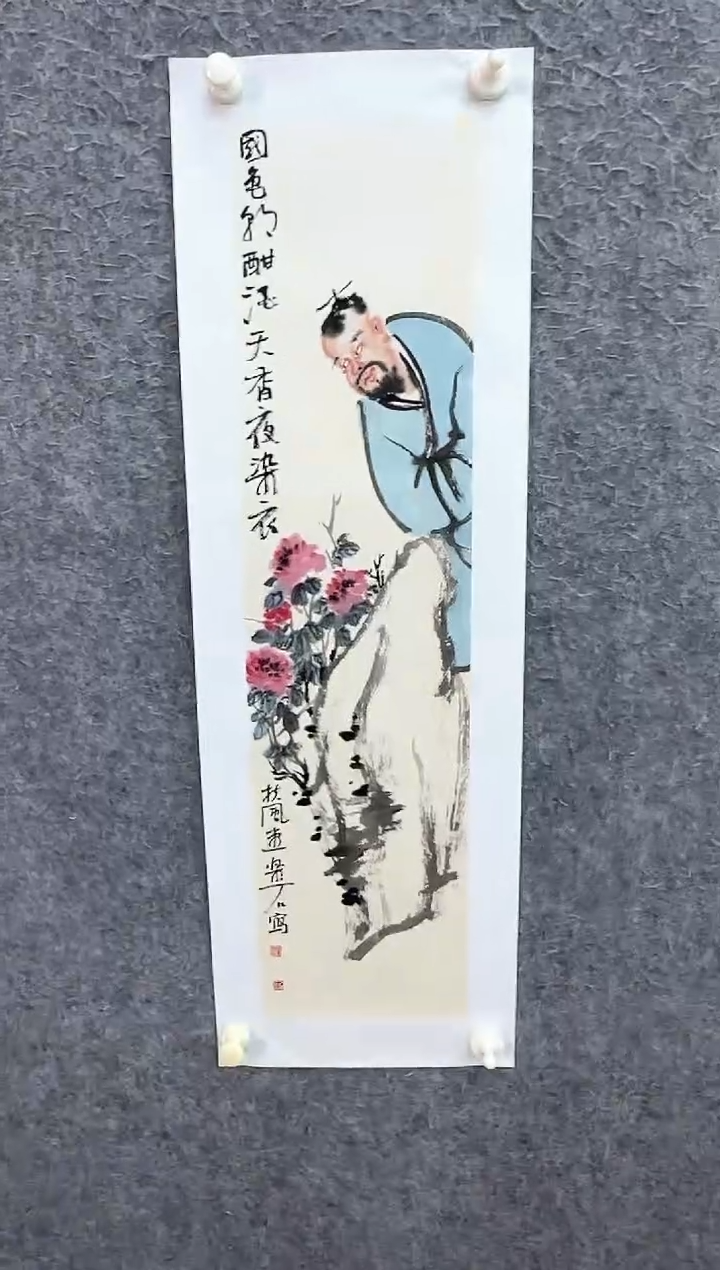 國色朝酣酒天香夜染衣
扶風道梁石寫